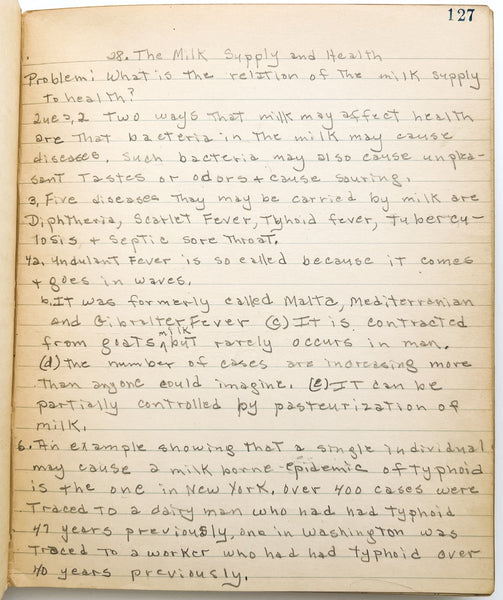 127
28. The Milk Supply and Health
Problem: What is the relation of the milk supply
to health?
Ques, 2 Two ways that milk may affect health
are that bacteria in the milk may cause
diseases. Such bacteria may also cause unplea-
sant tastes or odors + cause souring.
3, Five diseases thay may be carried by milk are
Diphtheria, Scarlet Fever, Tyhoid fever, tubercu-
losis, + Septic sore throat.
4a. Undulant Fever is so called because it comes
+ goes in waves.
b. It was formerly called Malta, Mediterranian
and Gibralter Fever (c) It is contracted
from goats milk but rarely occurs in man.
(d) the number of cases are increasing more
than anyone could imagine. (e) It can be
partially controlled by pasteurization of
milk.
6. An example showing that a single individual
may cause a milk borne epidemic of typhoid
is the one in New York. Over 400 cases were
traced to a dairy man who had had typhoid
47 years previously, one in Washington was
traced to a worker who had had typhoid over
40 years previously.